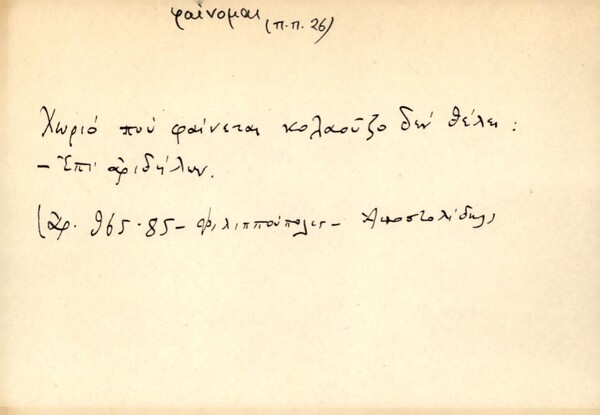 φαίνομαι (π.π. 26)
Χωριό πού φαίνεται κολαοῦζο δέν θέλει :
– Ἐπί ἀριδήλων.
(Ἀρ. 965·85 – Φιλιππούπολις – Ἀποστολίδης)